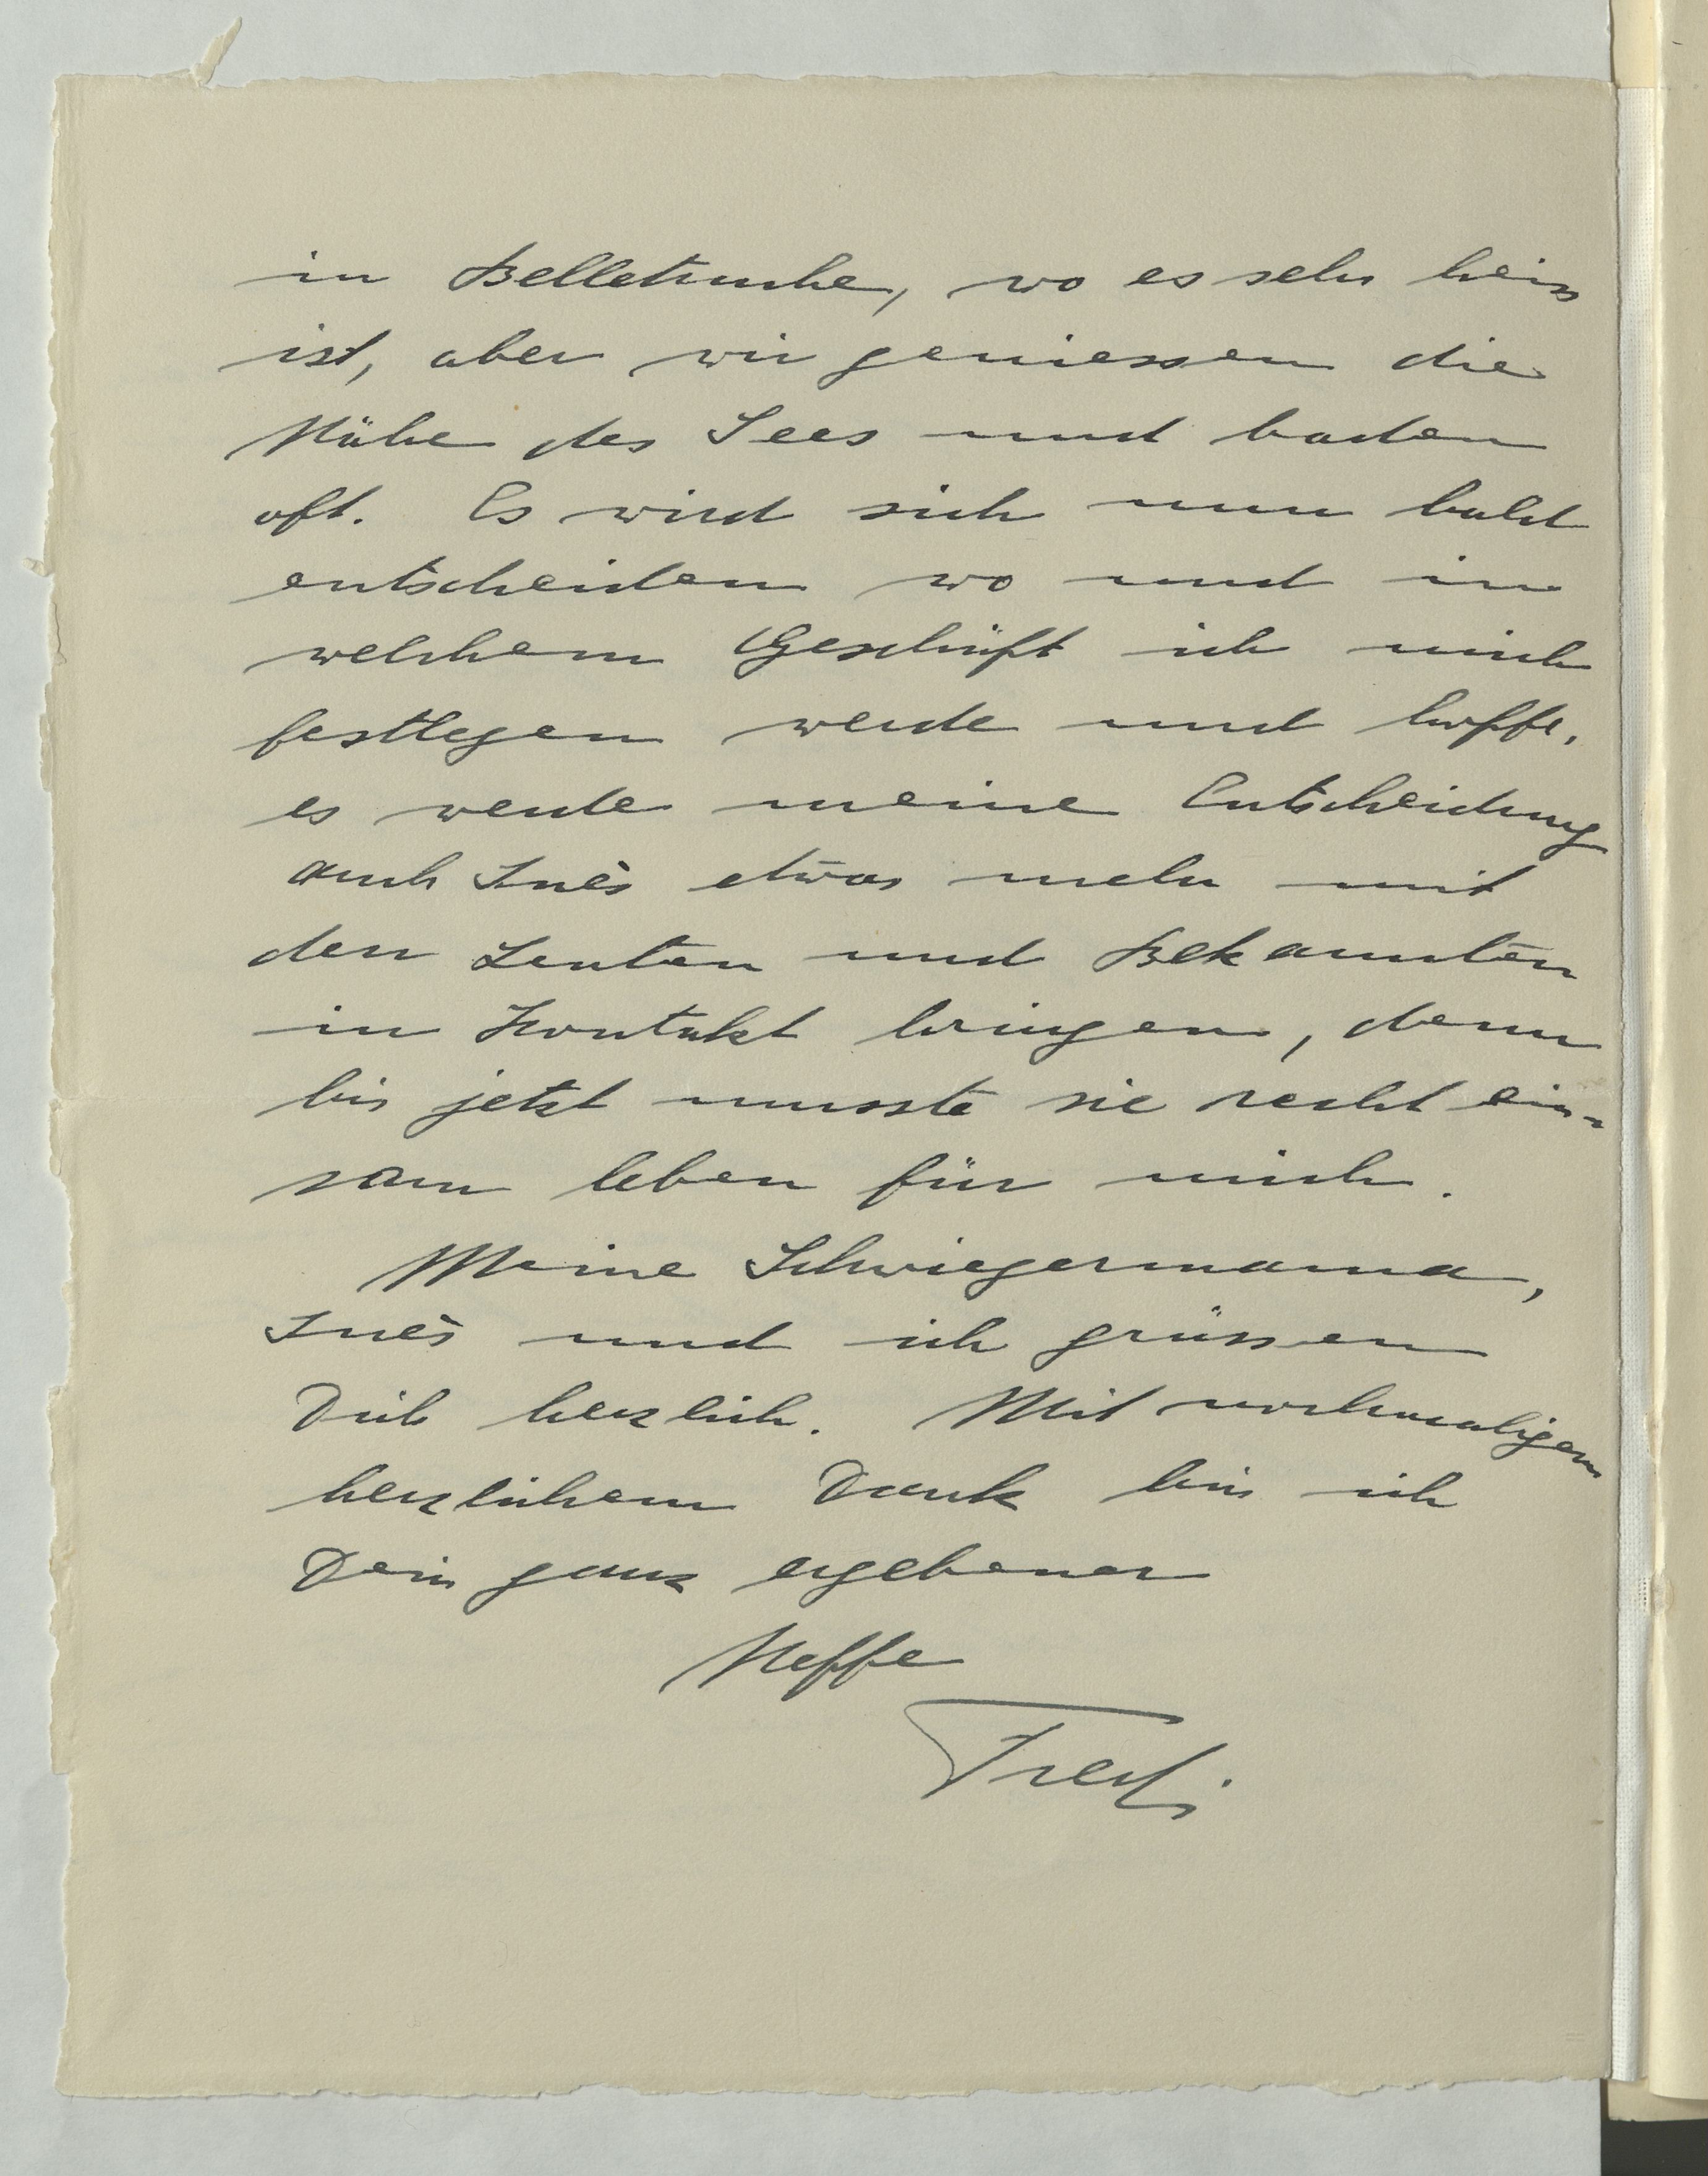 in Belletruche, wo es sehr heiss
ist, aber wir geniessen die
Nähe des Sees und baden
oft. Es wird sich nun bald
entscheiden wo und in
welchem Geschäft ich mich
festlegen werde und hoffe,
es werde meine Entscheidung
auch Inès etwas mehr mit
den Leuten und Bekannten
in Kontakt bringen, denn
bis jetzt musste sie recht ein-
sam leben für mich.
Meine Schwiegermama,
Inès und ich grüssen
Dich herzlich. Mit nochmaligem
herzlichem Dank bin ich
Dein ganz ergebener
Neffe
Fredi.